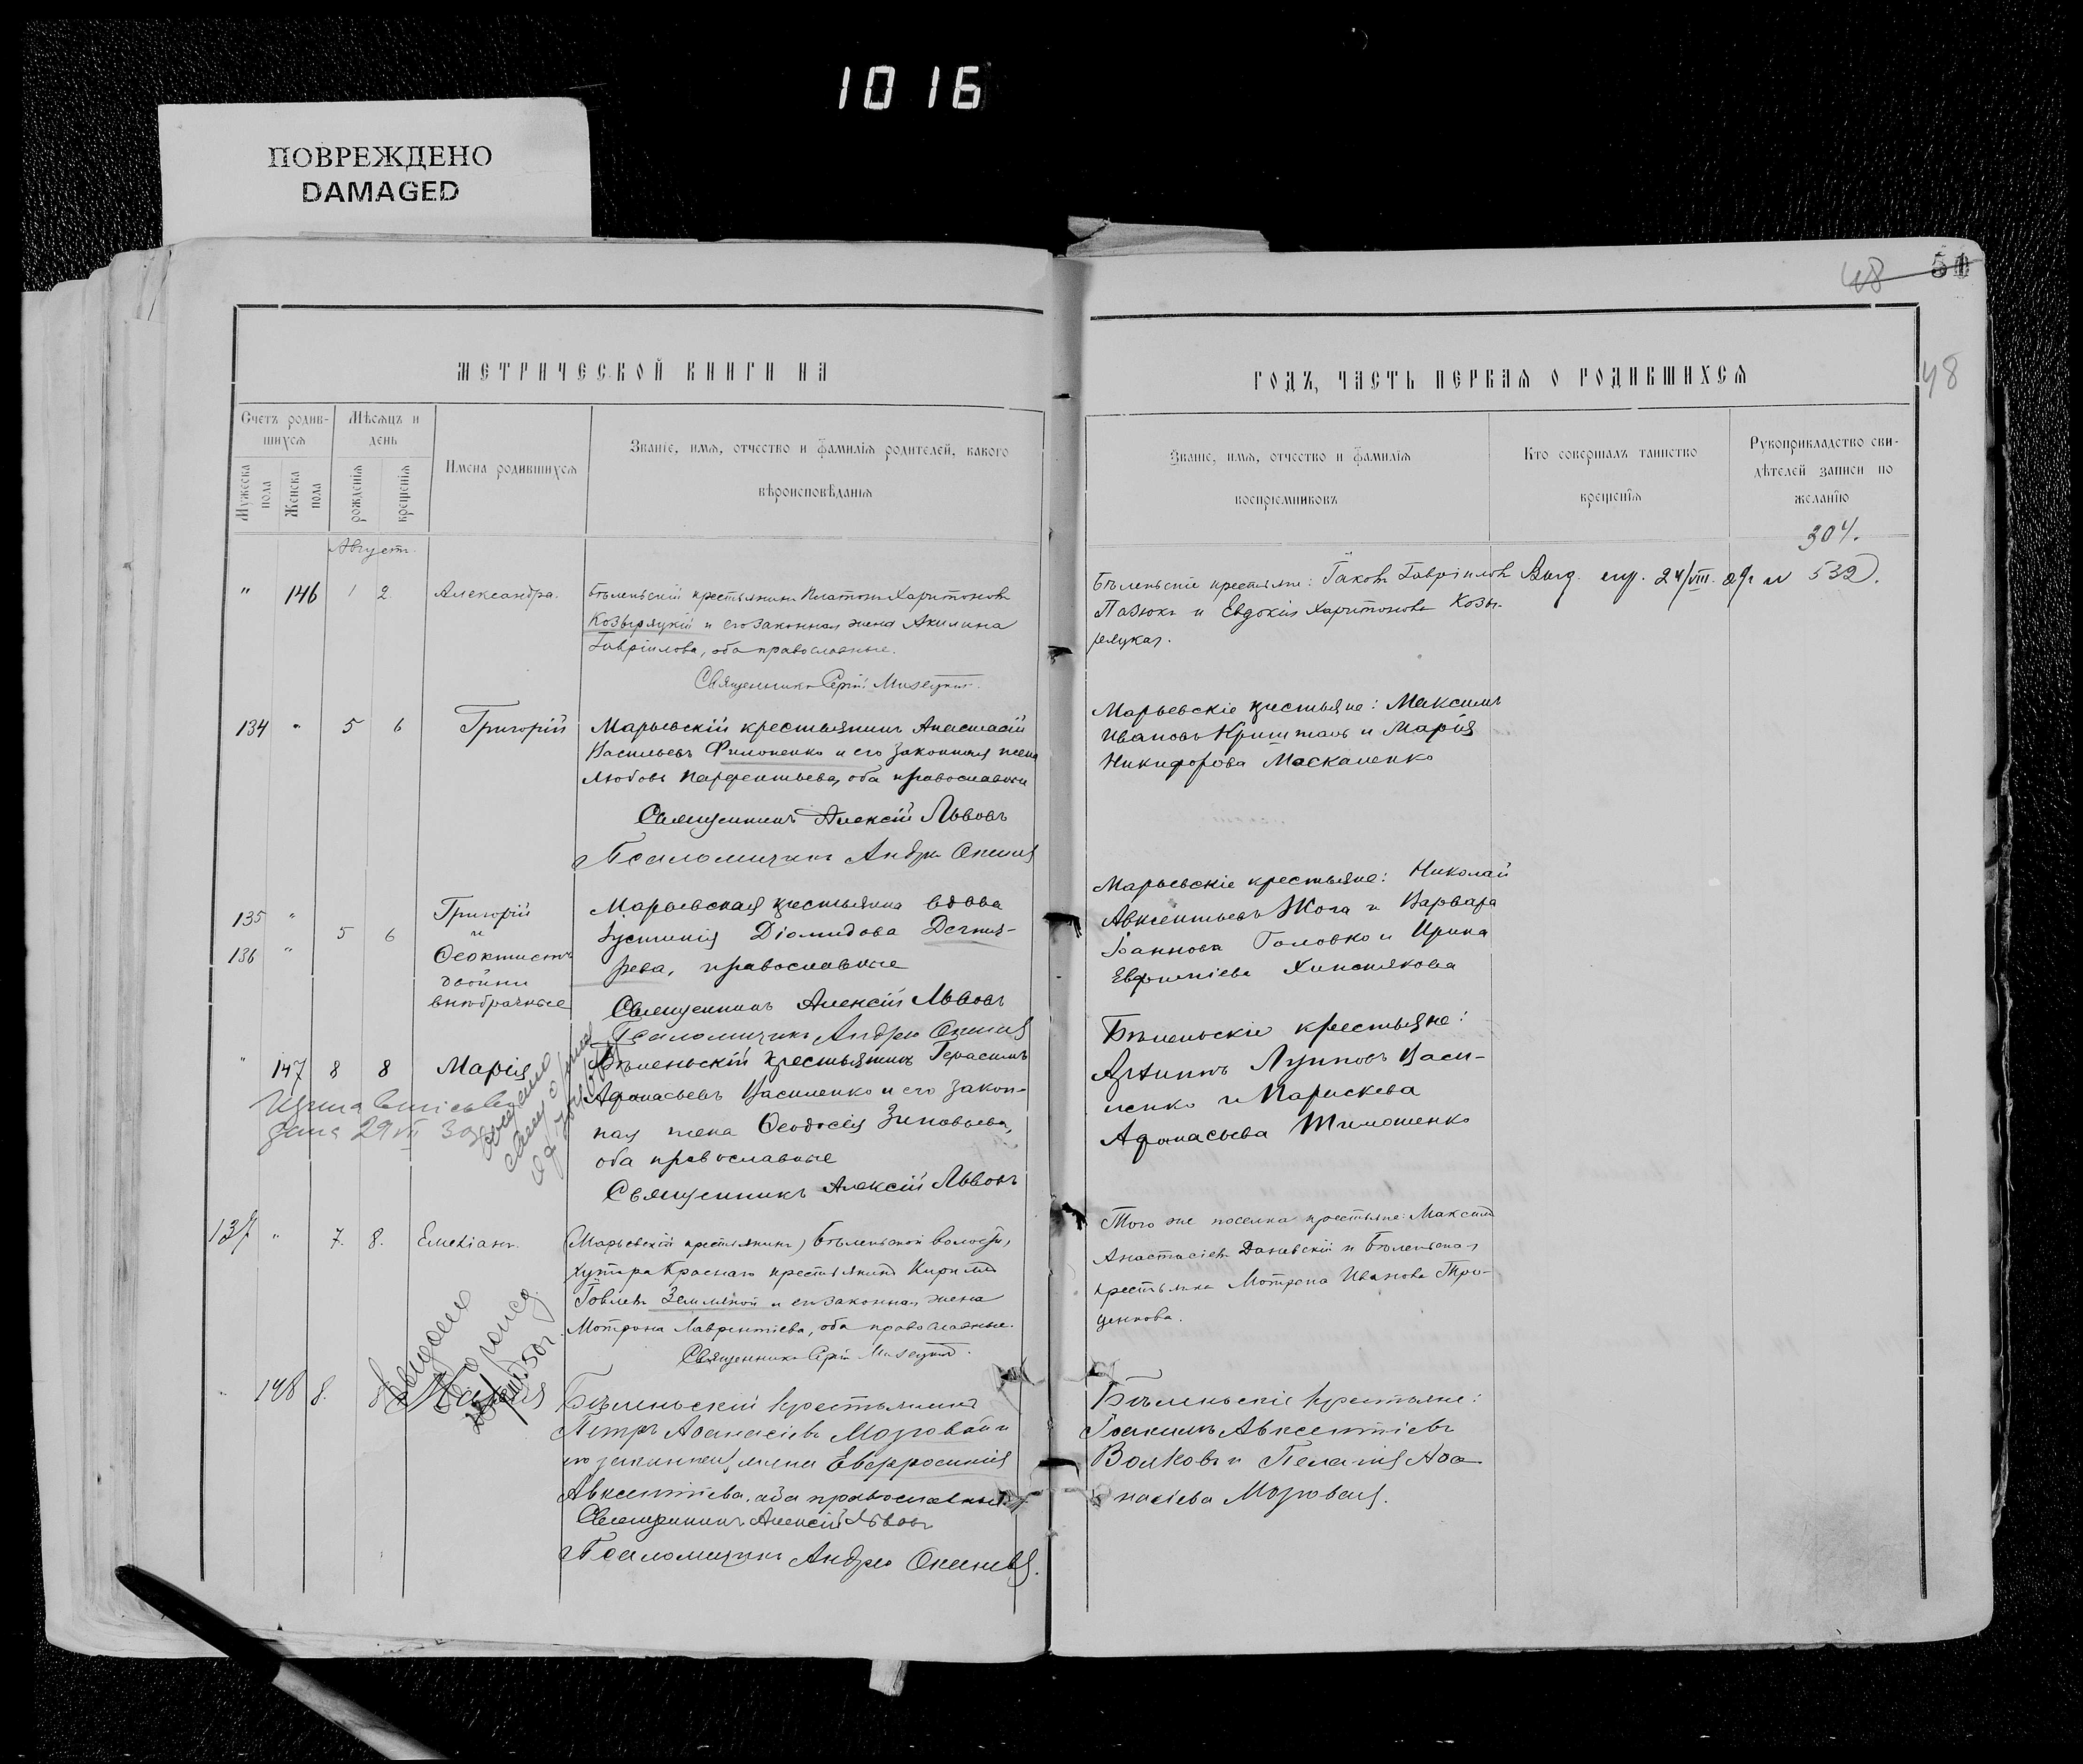 1016
ПОВРЕЖДЕНО
DAMAGED
48 50
48
МЕТРИЧЕСКОЙ КНИГИ НА
ГОДЪ, ЧАСТЬ ПЕРВАЯ О РОДИВШИХСЯ
Счетъ родив-
шихся
Мѣсяцъ и
день
Мужеска пола
Женска пола
рожденія
крещенія
Имена родившихся
Званіе, имя, отчество и фамилія родителей, какого
вѣроисповѣданія
Званіе, имя, отчество и фамилія
воспріемниковъ
Кто совершалъ таинство
крещенія
Рукоприкладство сви-
дѣтелей записи по
желанію
304.
Августъ
" 146 1 2 Александра.
Бѣленьскій крестьянинъ Платонъ Харитоновъ
Козыряцкій и его законная жена Акилина
Гавріилова, оба православные.
Священникъ Сергій
Бѣленьскіе крестьяне: Іаковъ Гавріиловъ
Пазюкъ и Евдокія Харитонова Козы-
ряцкая.
24/VIII. 532
134 " 5 6 Григорій
Марьевскій крестьянинъ Анастасій
Васильевъ Филоненко и его законная жена
Любовь Парфентьева, оба православные
Священникъ Алексій Львовъ
Псаломщикъ Андрей
Марьевскіе крестьяне: Максимъ
Ивановъ Кришталь и Марія
Никифорова Маскаленко
135 "
136 "
5 6
Григорій
и
Ѳеоктистъ
двойни
внѣбрачные
Марьевская крестьянка вдова
Іустинія Діомидова Дегтя-
рева, православные
Священникъ Алексій Львовъ
Псаломщикъ Андрей
Марьевскіе крестьяне: Николай
Авксентьевъ Жога и Варвара
Іоаннова Головко и Ирина
Евфиміева
" 147 8 8 Марія
Бѣленьскій крестьянинъ Герасимъ
Афанасьевъ Василенко и его закон-
ная жена Ѳеодосія Зиновьева,
оба православные
Священникъ Алексій Львовъ
Бѣленьскіе крестьяне:
Антипъ Лупповъ Васи-
ленко и Параскева
Афанасьева Тимошенко
дана 29 VII 30
137 " 7. 8. Емеліанъ.
(Марьевскій крестьянинъ) Бѣленьской волости,
хутора Краснаго крестьянинъ Кириллъ
Іовлевъ Земляной и его законная жена
Мотрона Лаврентіева, оба православные.
Священникъ Сергій
Того же поселка крестьяне: Максимъ
Анастасіевъ Даневскій и Бѣленьская
крестьянка Мотрона Иванова Тро-
ценкова.
" 148 8. 8
Бѣленьскій крестьянинъ
Петръ Аѳанасіевъ Мозговой и
его законная жена Евфросинія
Авксентіева, оба православные
Священникъ Алексій Львовъ
Псаломщикъ Андрей
Бѣленьскіе крестьяне:
Іоакимъ Авксентіевъ
Волковъ и Пелагія Аѳа-
насіева Мозговая.